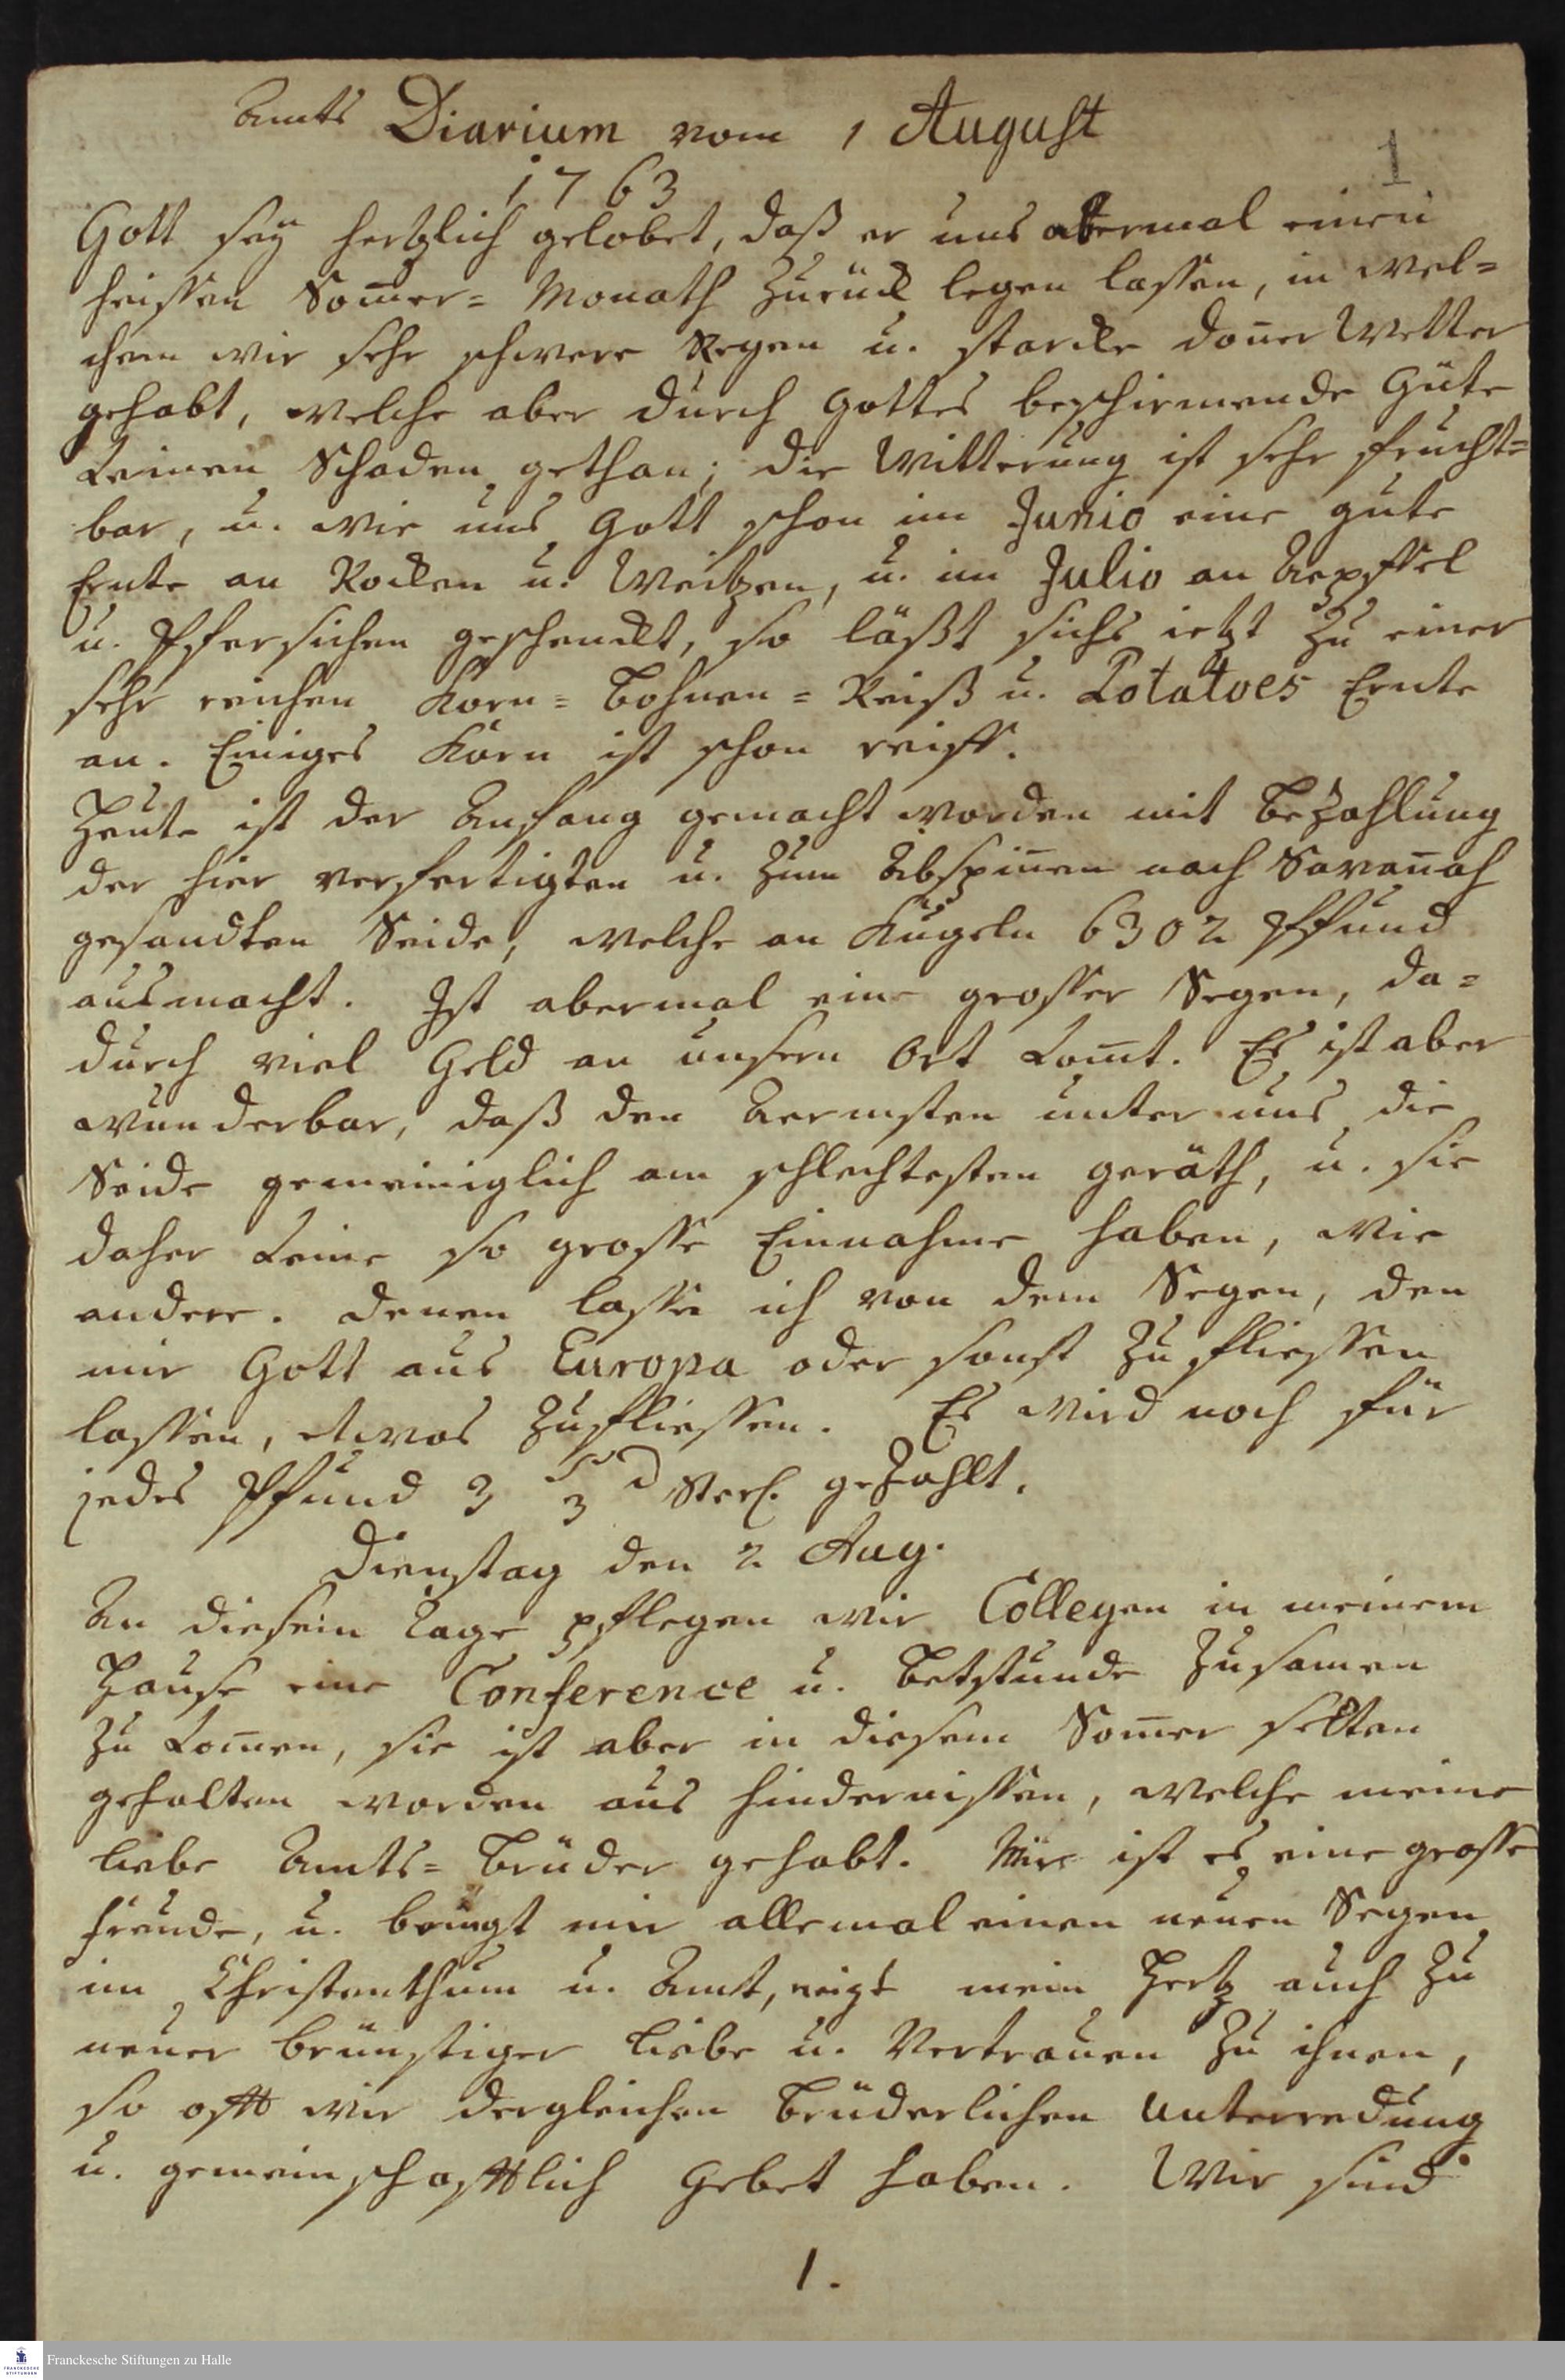 Amts Diarium vom 1 August
1763
1
Gott sey hertzlich gelobet, daß er uns abermal einen
heissen Som̄er= Monath zurück legen lassen, in wel=
chem wir sehr schwere Regen u. starcke Don̄er Wetter
gehabt, welche aber durch Gottes beschirmende Güte
keinen Schaden gethan; die Witterung ist sehr frucht=
bar, u. wie uns Gott schon im Junio eine gute
Ernte an Rocken u. Weitzen, u. im Julio an Aepffel
u. Pfersichen geschenckt, so läßt sichs ietzt zu einer
sehr reichen Korn= Bohnen= Reiß u. Potatoes Ernte
an. Einiges Korn ist schon reiff.
Heute ist der Anfang gemacht worden mit Bezahlung
der hier verfertigten u. zum Abspin̄en nach Savan̄ah
gesandten Seide, welche an Kugeln 6302 Pfund
ausmacht. Ist abermal ein grosser Segen, da=
durch viel Geld an unsern Ort kom̄t. Es ist aber
wunderbar, daß den Aermsten unter uns die
Seide gemeiniglich am schlechtesten geräth, u. sie
daher keine so grosse Einnahme haben, wie
andere. Denen lasse ich von dem Segen, den
mir Gott aus Europa oder sonst zufliessen
lassen, etwas zufliessen. Es wird noch für
jedes Pfund 3 s 3 d Sterl. gezahlt.
Dienstag den 2 Aug.
An diesem Tage pflegen wir Collegen in meinem
Hause eine Conference u. Betstunde zusamen
zu kom̄en, sie ist aber in diesem Som̄er selten
gehalten worden aus Hindernissen, welche meine
liebe Amts= Brüder gehabt. Mir ist es eine grosse
Freude, u. bringt mir allemal einen neuen Segen
im Christenthum u. Amt, neigt mein Hertz auch zu
neuer brünstiger Liebe u. Vertrauen zu ihnen,
so offt wir dergleichen brüderlichen Unterredung
u. gemeinschafftlich Gebet haben. Wir sind
1.
Franckesche Stiftungen zu Halle
FRANCKESCHE
STIFTUNGEN